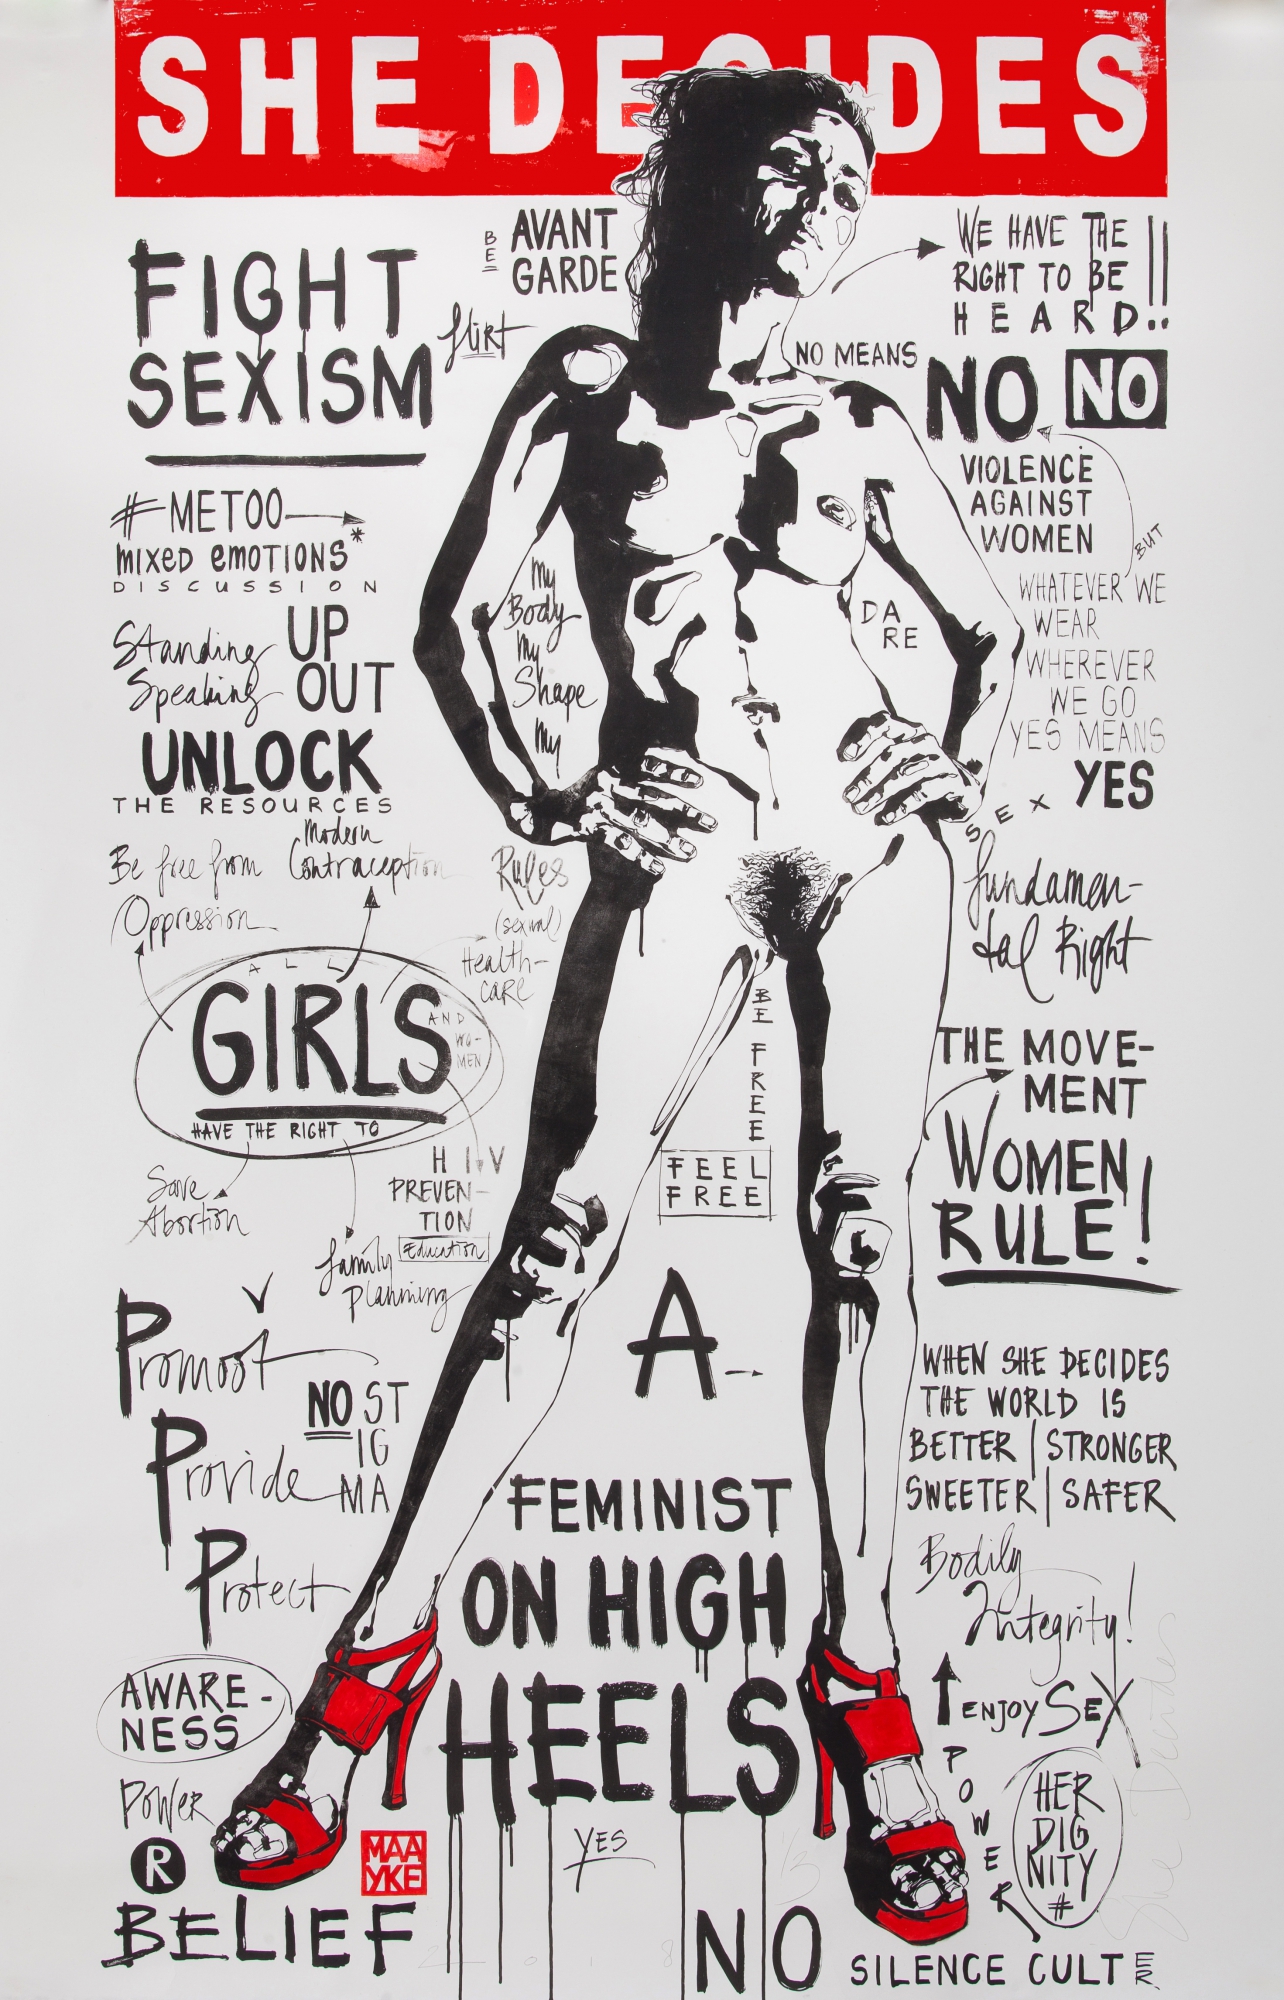 SHE DECIDES
BE
AVANT
GARDE
FIGHT
SEXISM
flirt
WE HAVE THE
RIGHT TO BE
HEARD!!
NO MEANS
NO NO
VIOLENCE
AGAINST
WOMEN
BUT
WHATEVER WE
WEAR
WHEREVER
WE GO
YES MEANS
YES
#METOO
mixed emotions*
DISCUSSION
Standing UP
Speaking OUT
UNLOCK
THE RESOURCES
My
Body
My
Shape
My
Rules
DA
RE
SEX
fundamen-
tal Right
Modern
Contraception
Be free from
Oppression
(sexual)
Health-
care
ALL
GIRLS
AND
WO-
MEN
HAVE THE RIGHT TO
Save
Abortion
HIV
PREVEN-
TION
Education
family
planning
BE
FREE
FEEL
FREE
THE MOVE-
MENT
WOMEN
RULE!
Promoot
Provide
Protect
NO ST
IG
MA
A
FEMINIST
ON HIGH
HEELS
YES
NO
WHEN SHE DECIDES
THE WORLD IS
BETTER | STRONGER
SWEETER | SAFER
Bodily
Integrity!
ENJOY SEX
POWER
HER
DIG
NITY
#
AWARE-
NESS
POWER
R
BELIEF
MAA
YKE
SILENCE CULT
ER
2018
1/3
She Decides